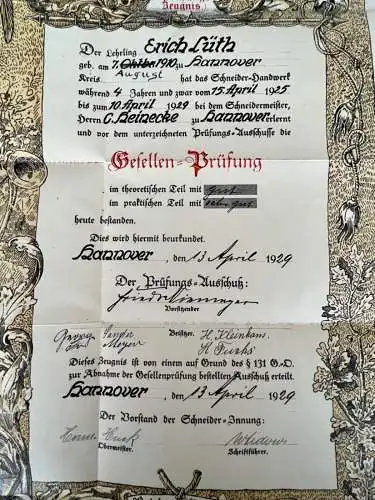 Zeugnis
Der Lehrling Erich Lüth
geb. am 7. Oktbr. 1910 zu Hannover
August
Kreis hat das Schneider-Handwerk
während 4 Jahren und zwar vom 15 April 1925
bis zum 10 April 1929 bei dem Schneidermeister,
Herrn C. Heinecke zu Hannover erlernt
und vor dem unterzeichneten Prüfungs-Ausschusse die
Gesellen-Prüfung
im theoretischen Teil mit gut
im praktischen Teil mit sehr gut
heute bestanden.
Dies wird hiermit beurkundet.
Hannover, den 13 April 1929
Der Prüfungs-Ausschuß:
Vorsitzender
Georg Sander Beisitzer. H. Kleinhans
Meyer H. Fuchs
Dieses Zeugnis ist von einem auf Grund des § 131 G.-O.
zur Abnahme der Gesellenprüfung bestellten Ausschuß erteilt.
Hannover, den 13 April 1929
Der Vorstand der Schneider-Innung:
Obermeister. Schriftführer.